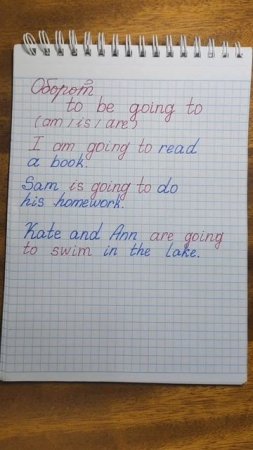 Оборот
to be going to
(am / is / are)
I am going to read
a book.
Sam is going to do
his homework.
Kate and Ann are going
to swim in the lake.